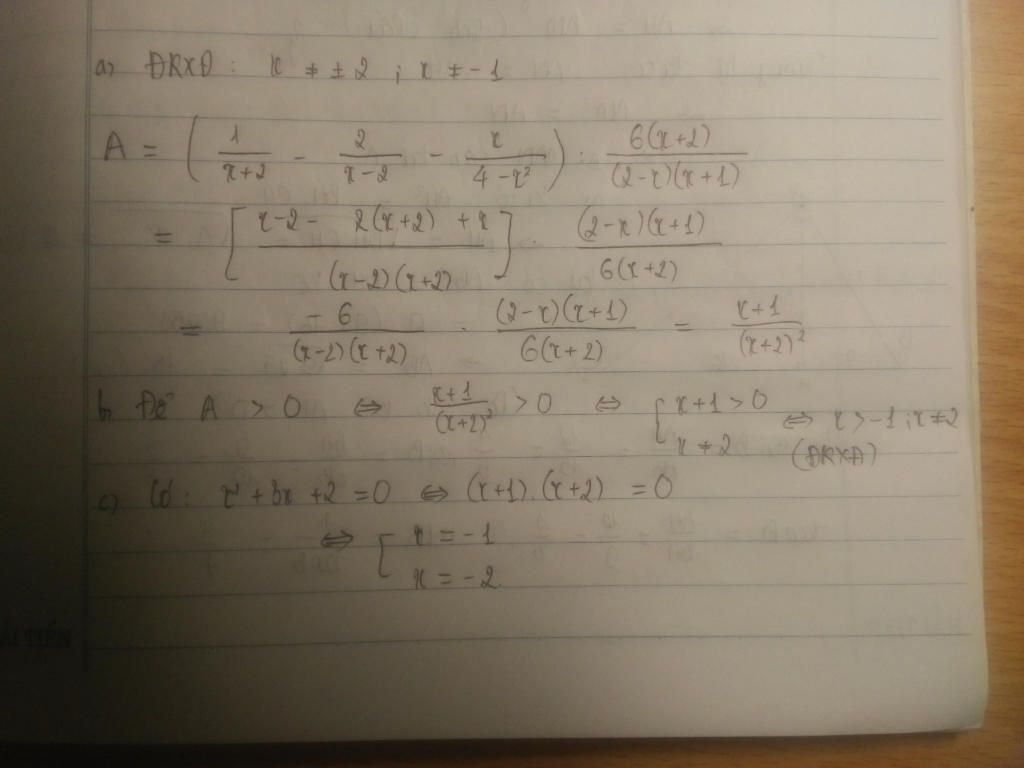 a) ĐKXĐ : x ≠ ± 2 ; x ≠ -1
A = ( 1/(x+2) - 2/(x-2) - x/(4-x²) ) : 6(x+2)/((2-x)(x+1))
= [ (x-2 - 2(x+2) + x)/((x-2)(x+2)) ] . ((2-x)(x+1))/(6(x+2))
= -6/((x-2)(x+2)) . ((2-x)(x+1))/(6(x+2)) = (x+1)/(x+2)²
b, Để A > 0 ⇔ (x+1)/(x+2)² > 0 ⇔ { x+1 > 0 ; x ≠ 2 ⇔ x > -1 ; x ≠ 2
(ĐKXĐ)
c) Có : x² + 3x + 2 = 0 ⇔ (x+1).(x+2) = 0
⇔ [ x = -1
x = -2
ẢI TIẾN